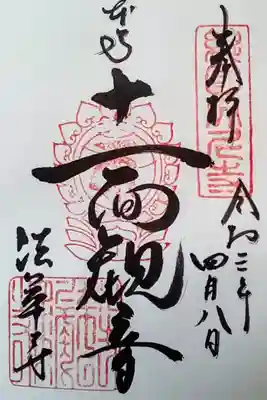 奉拝
令和三年
四月八日
本尊
十一面観音
法華寺